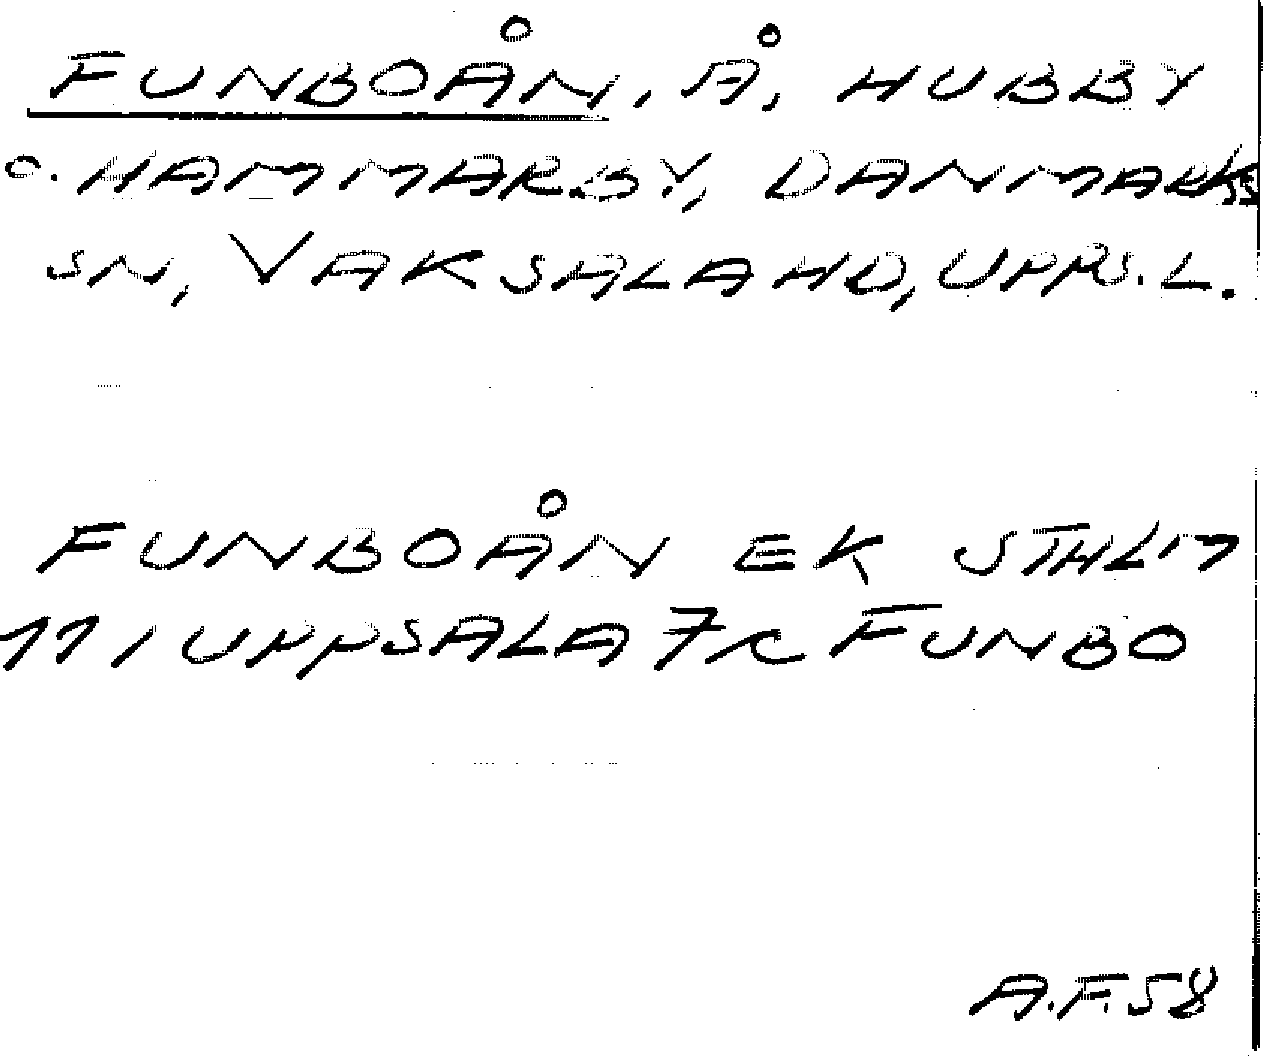 FUNBOÅN, Å, HUBBY
O. HAMMARBY, DANMARKS
SN, VAKSALA HD, UPPS. L.
FUNBOÅN EK STHLM
111 UPPSALA 7c FUNBO
A.F.58